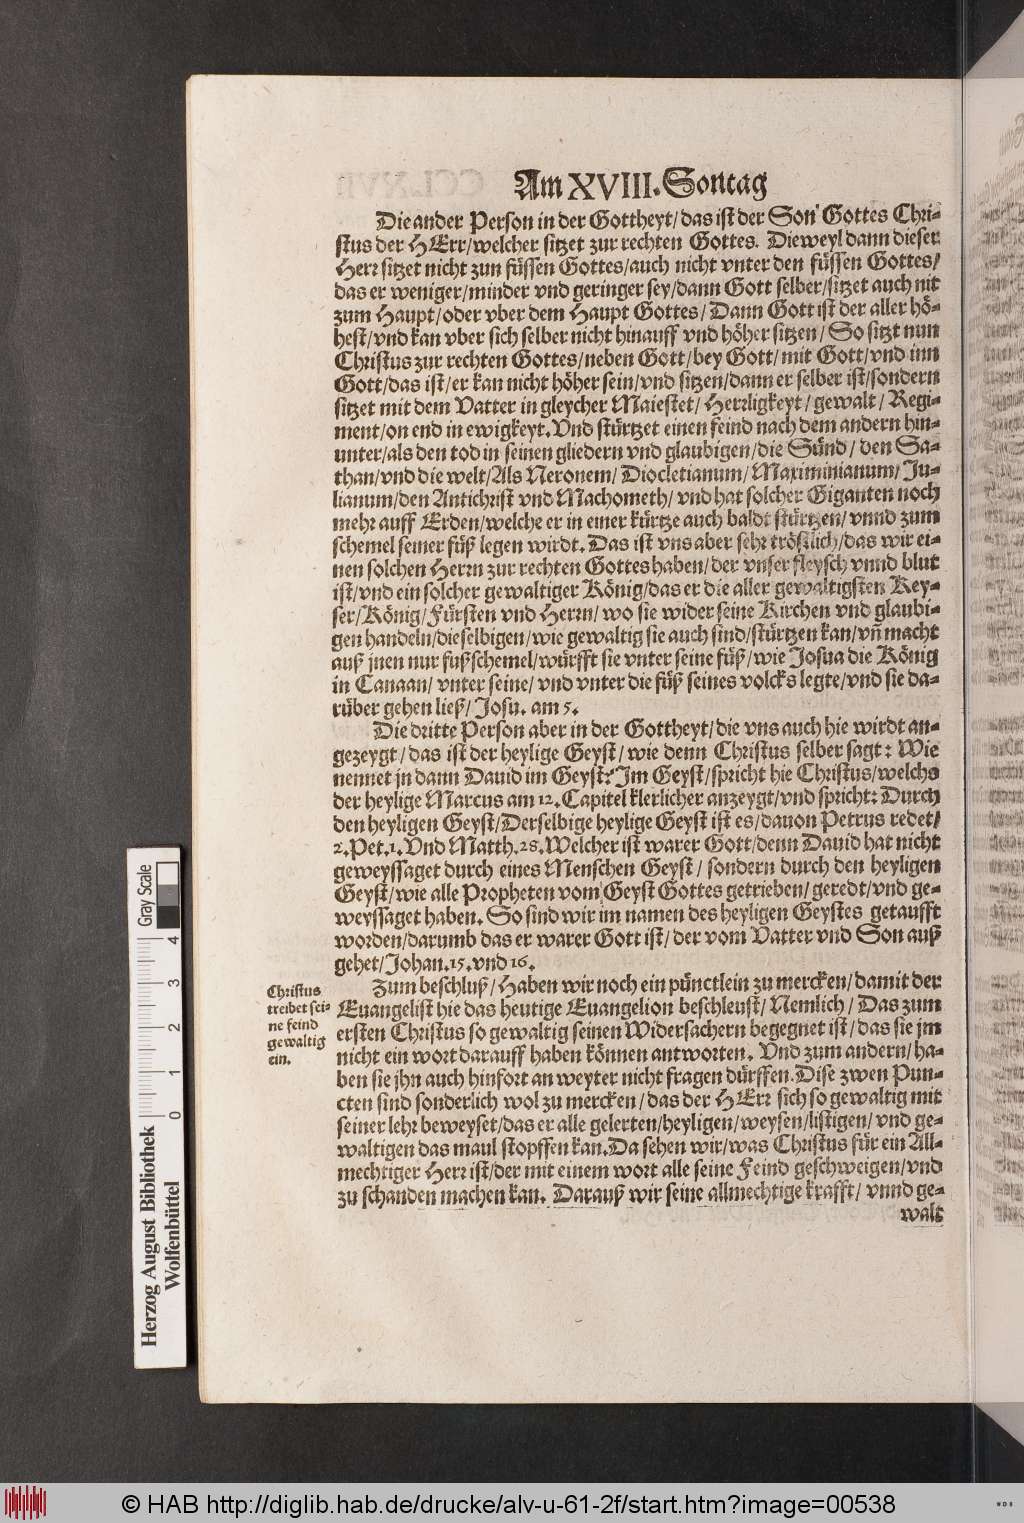 Am XVIII. Sontag
Die ander Person in der Gottheyt/ das ist der Son Gottes Chri-
stus der HErr/ welcher sitzet zur rechten Gottes. Dieweyl dann dieser
Herr sitzet nicht zun füssen Gottes/ auch nicht vnter den füssen Gottes/
das er weniger/ minder vnd geringer sey/ dann Gott selber/ sitzet auch nit
zum Haupt/ oder vber dem Haupt Gottes/ Dann Gott ist der aller hö-
hest/ vnd kan vber sich selber nicht hinauff vnd höher sitzen/ So sitzt nun
Christus zur rechten Gottes/ neben Gott/ bey Gott/ mit Gott/ vnd inn
Gott/ das ist/ er kan nicht höher sein/ vnd sitzen/ dann er selber ist/ sondern
sitzet mit dem Vatter in gleycher Maiestet/ Herrligkeyt/ gewalt/ Regi-
ment/ on end in ewigkeyt. Vnd stürtzet einen feind nach dem andern hin-
unter/ als den tod in seinen gliedern vnd glaubigen/ die Sünd/ den Sa-
than/ vnd die welt/ Als Neronem/ Diocletianum/ Maximinianum/ Ju-
lianum/ den Antichrist vnd Machometh/ vnd hat solcher Giganten noch
mehr auff Erden/ welche er in einer kürtze auch baldt stürtzen/ vnnd zum
schemel seiner füß legen wirdt. Das ist vns aber sehr tröstlich/ das wir ei-
nen solchen Herrn zur rechten Gottes haben/ der vnser fleysch vnnd blut
ist/ vnd ein solcher gewaltiger König/ das er die aller gewaltigsten Key-
ser/ König/ Fürsten vnd Herrn/ wo sie wider seine Kirchen vnd glaubi-
gen handeln/ dieselbigen/ wie gewaltig sie auch sind/ stürtzen kan/ vñ macht
auß jnen nur fußschemel/ würfft sie vnter seine füß/ wie Josua die König
in Canaan/ vnter seine/ vnd vnter die füß seines volcks legte/ vnd sie da-
rüber gehen ließ/ Josu. am 5.
Die dritte Person aber in der Gottheyt/ die vns auch hie wirdt an-
gezeygt/ das ist der heylige Geyst/ wie denn Christus selber sagt: Wie
nennet jn dann Dauid im Geyst? Im Geyst/ spricht hie Christus/ welchs
der heylige Marcus am 12. Capitel klerlicher anzeygt/ vnd spricht: Durch
den heyligen Geyst/ Derselbige heylige Geyst ist es/ dauon Petrus redet/
2. Pet. 1. Vnd Matth. 28. Welcher ist warer Gott/ denn Dauid hat nicht
geweyssaget durch eines Menschen Geyst/ sondern durch den heyligen
Geyst/ wie alle Propheten vom Geyst Gottes getrieben/ geredt/ vnd ge-
weyssaget haben. So sind wir im namen des heyligen Geystes getaufft
worden/ darumb das er warer Gott ist/ der vom Vatter vnd Son auß
gehet/ Johan. 15. vnd 16.
Zum beschluß/ Haben wir noch ein pünctlein zu mercken/ damit der
Euangelist hie das heutige Euangelion beschleust/ Nemlich/ Das zum
ersten Christus so gewaltig seinen Widersachern begegnet ist/ das sie jm
nicht ein wort darauff haben können antworten. Vnd zum andern/ ha-
ben sie jhn auch hinfort an weyter nicht fragen dürffen. Dise zwen Pun-
cten sind sonderlich wol zu mercken/ das der HErr sich so gewaltig mit
seiner lehr beweyset/ das er alle gelerten/ heyligen/ weysen/ listigen/ vnd ge-
waltigen das maul stopffen kan. Da sehen wir/ was Christus für ein All-
mechtiger Herr ist/ der mit einem wort alle seine Feind geschweigen/ vnd
zu schanden machen kan. Darauß wir seine allmechtige krafft/ vnnd ge-
walt
Christus
treibet sei-
ne feind
gewaltig
ein.
Herzog August Bibliothek
Wolfenbüttel
Gray Scale
0 1 2 3 4
© HAB http://diglib.hab.de/drucke/alv-u-61-2f/start.htm?image=00538